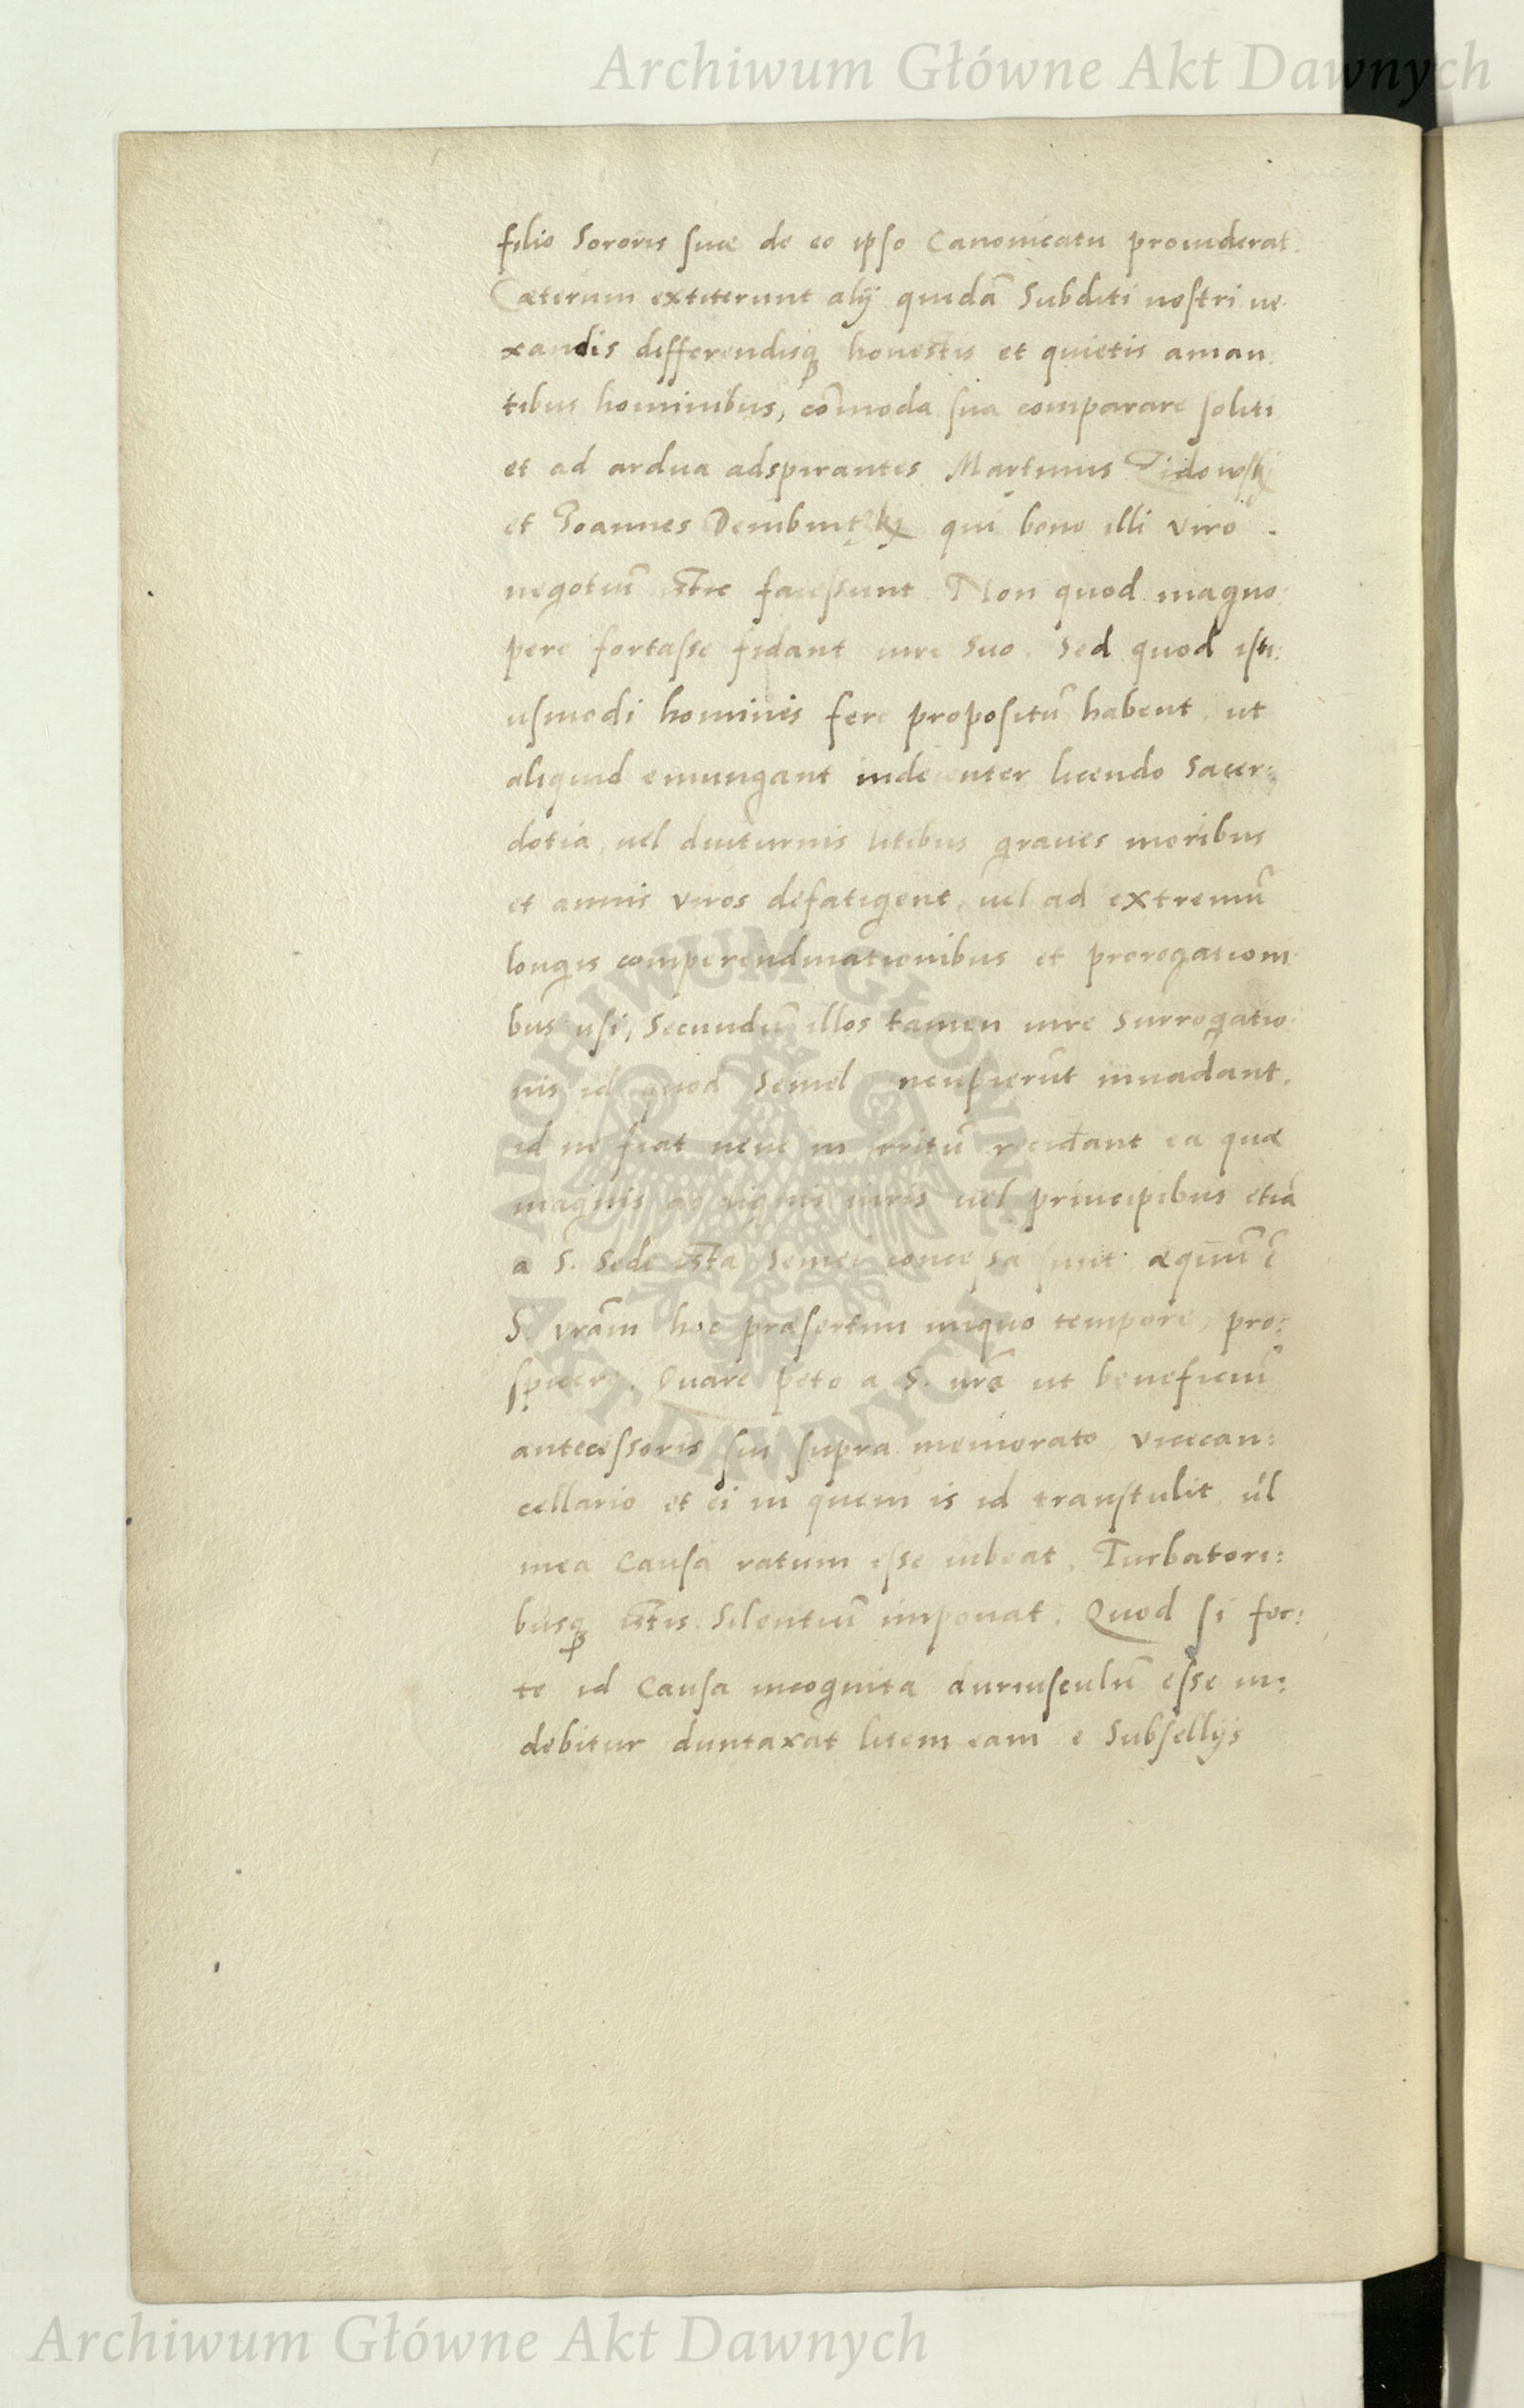 Archiwum Główne Akt Dawnych
filio Sororis suae de eo ipso Canonicatu prouiderat.
Cæterum extiterunt alij quidã Subditi nostri ve-
xandis differendisq́ʒ honestis et quietis aman:
tibus hominibus, cõmoda sua comparare soliti
et ad ardua adspirantes Martinus Zidowskj
et Joannes Dembintzkj qui bono illi viro
negotiũ istic facessunt. Non quod magno:
pere fortasse fidant iure suo. Sed quod isti:
usmodi homines fere propositũ habent, ut
aliquid emungant indecenter licendo Sacer:
dotia, uel diuturnis litibus graues moribus
et annis viros defatigent, uel ad extremũ
longis comperendinationibus et prorogationi:
bus usi, Secundũ illos tamen iure Surrogatio:
nis id quod Semel occuparũt inuadant.
id ne fiat neue in irritũ recidant ea quæ
magnis ac dignis uiris uel principibus etiã
a S. Sede ista Semel concessa sunt æquũ ẽ
S. vrãm hoc præsertim iniquo tempore, pro:
spicere. Quare peto a S. vrã ut beneficiũ
antecessoris sui supra memorato vicecan:
cellario et ei in quem is id transtulit, ul̃
mea Causa ratum esse iubeat, Turbatori:
busq́ʒ istis Silentiũ imponat. Quod si for:
te id Causa incognita duriusculũ esse ui:
debitur duntaxat litem eam e Subsellijs
ARCHIWUM GŁÓWNE AKT DAWNYCH
Archiwum Główne Akt Dawnych